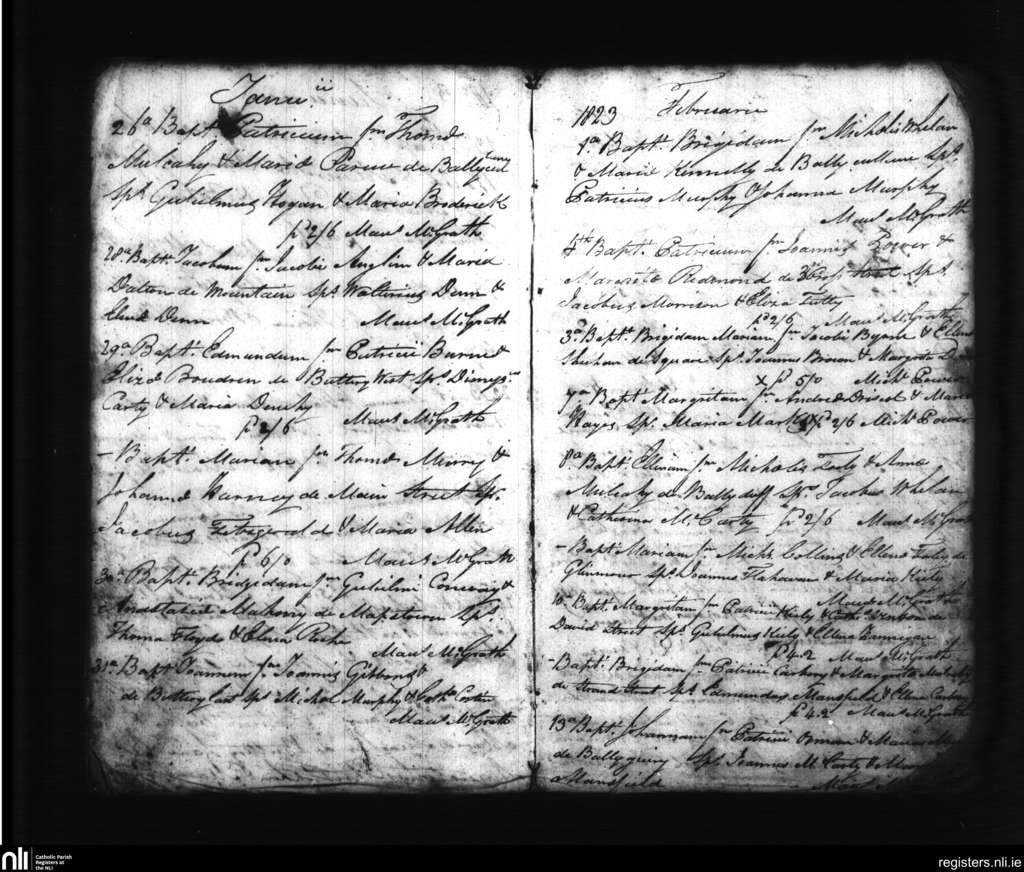 Januii
26a Bapt. Patricium fm Thomæ
Mulcahy & Mariæ Paruer de Ballycul
Sps Gulielmus Hogan & Maria Broderick
pd 2/6 Maus McGrath
28a Bapt. Jacobum fm Jacobi Anglin & Mariæ
Dalton de Mountain Sps Walterius Dunn &
Dunn Maus McGrath
29a Bapt. Edmundum fm Patricii
Elizæ Boudren de Buttery West Sps Dionysi
Carty & Maria Maus McGrath
pd 2/6
- Bapt. Mariam fm Thomæ Murry &
Johannæ Karney de Main Street Sps
Jacobus Fitzgerald & Maria Allen
pd 6/0 Maus McGrath
30a Bapt. Bridgidam fm Gulielmi Conway &
Anastatiæ Mahony de Mapstown Sps
Thoma Floyd & Elena
Maus McGrath
31a Bapt. Joannem fm Joannis Gibbons &
de Buttery East Sps Michal Murphy & Cath
Maus McGrath
1823 Februarii
1a Bapt. Brigidam fm Michalis Whelan
& Mariæ Kennelly de Bally cullane Sps
Patricius Murphy & Johanna Murphy
Maus McGrath
5th Bapt. Patricium fm Joannis Power &
Margretæ Redmond de street Sps
Jacobus Morrison & Eliza Tully
pd 2/6 Maus McGrath
3a Bapt. Brigidam Mariam fm Jacobi Byrne & Ellena
Shehan de Square Sps Joannes Brown & Margreta
x pd 5/0 Michl Power
7a Bapt. Margritam fm Andreæ Driscol & Mariæ
Hayes Sps Maria pd 2/6 Michl Power
8a Bapt. Ellenam fm Michalis Tooly & Anna
Mulcahy de Ballyduff Sps Jacobus Whelan
& Catharina McCarty pd 2/6 Maus McGrath
- Bapt. Mariam fm Michs Collins & Ellena de
Glinmour Sps Joannes Flahavan & Maria Kiely
Maus McGrath
10a Bapt. Margritam fm Patricii Kiely & Cath de
David Street Sps Gulielmus Kiely & Ellena Lannegan
pd 4.2 Maus McGrath
- Bapt. Brigidam fm Patricii Carbery & Margrita
de Strand Street Sps Edmundus Mansfield & Ellena Carbery
pd 4.2 Maus McGrath
13a Bapt. Johannam fm Patricii & Maria
de Bally guiry Sps Joannes McCarty &
Mansfield
nli Catholic Parish
Registers at
the NLI
registers.nli.ie